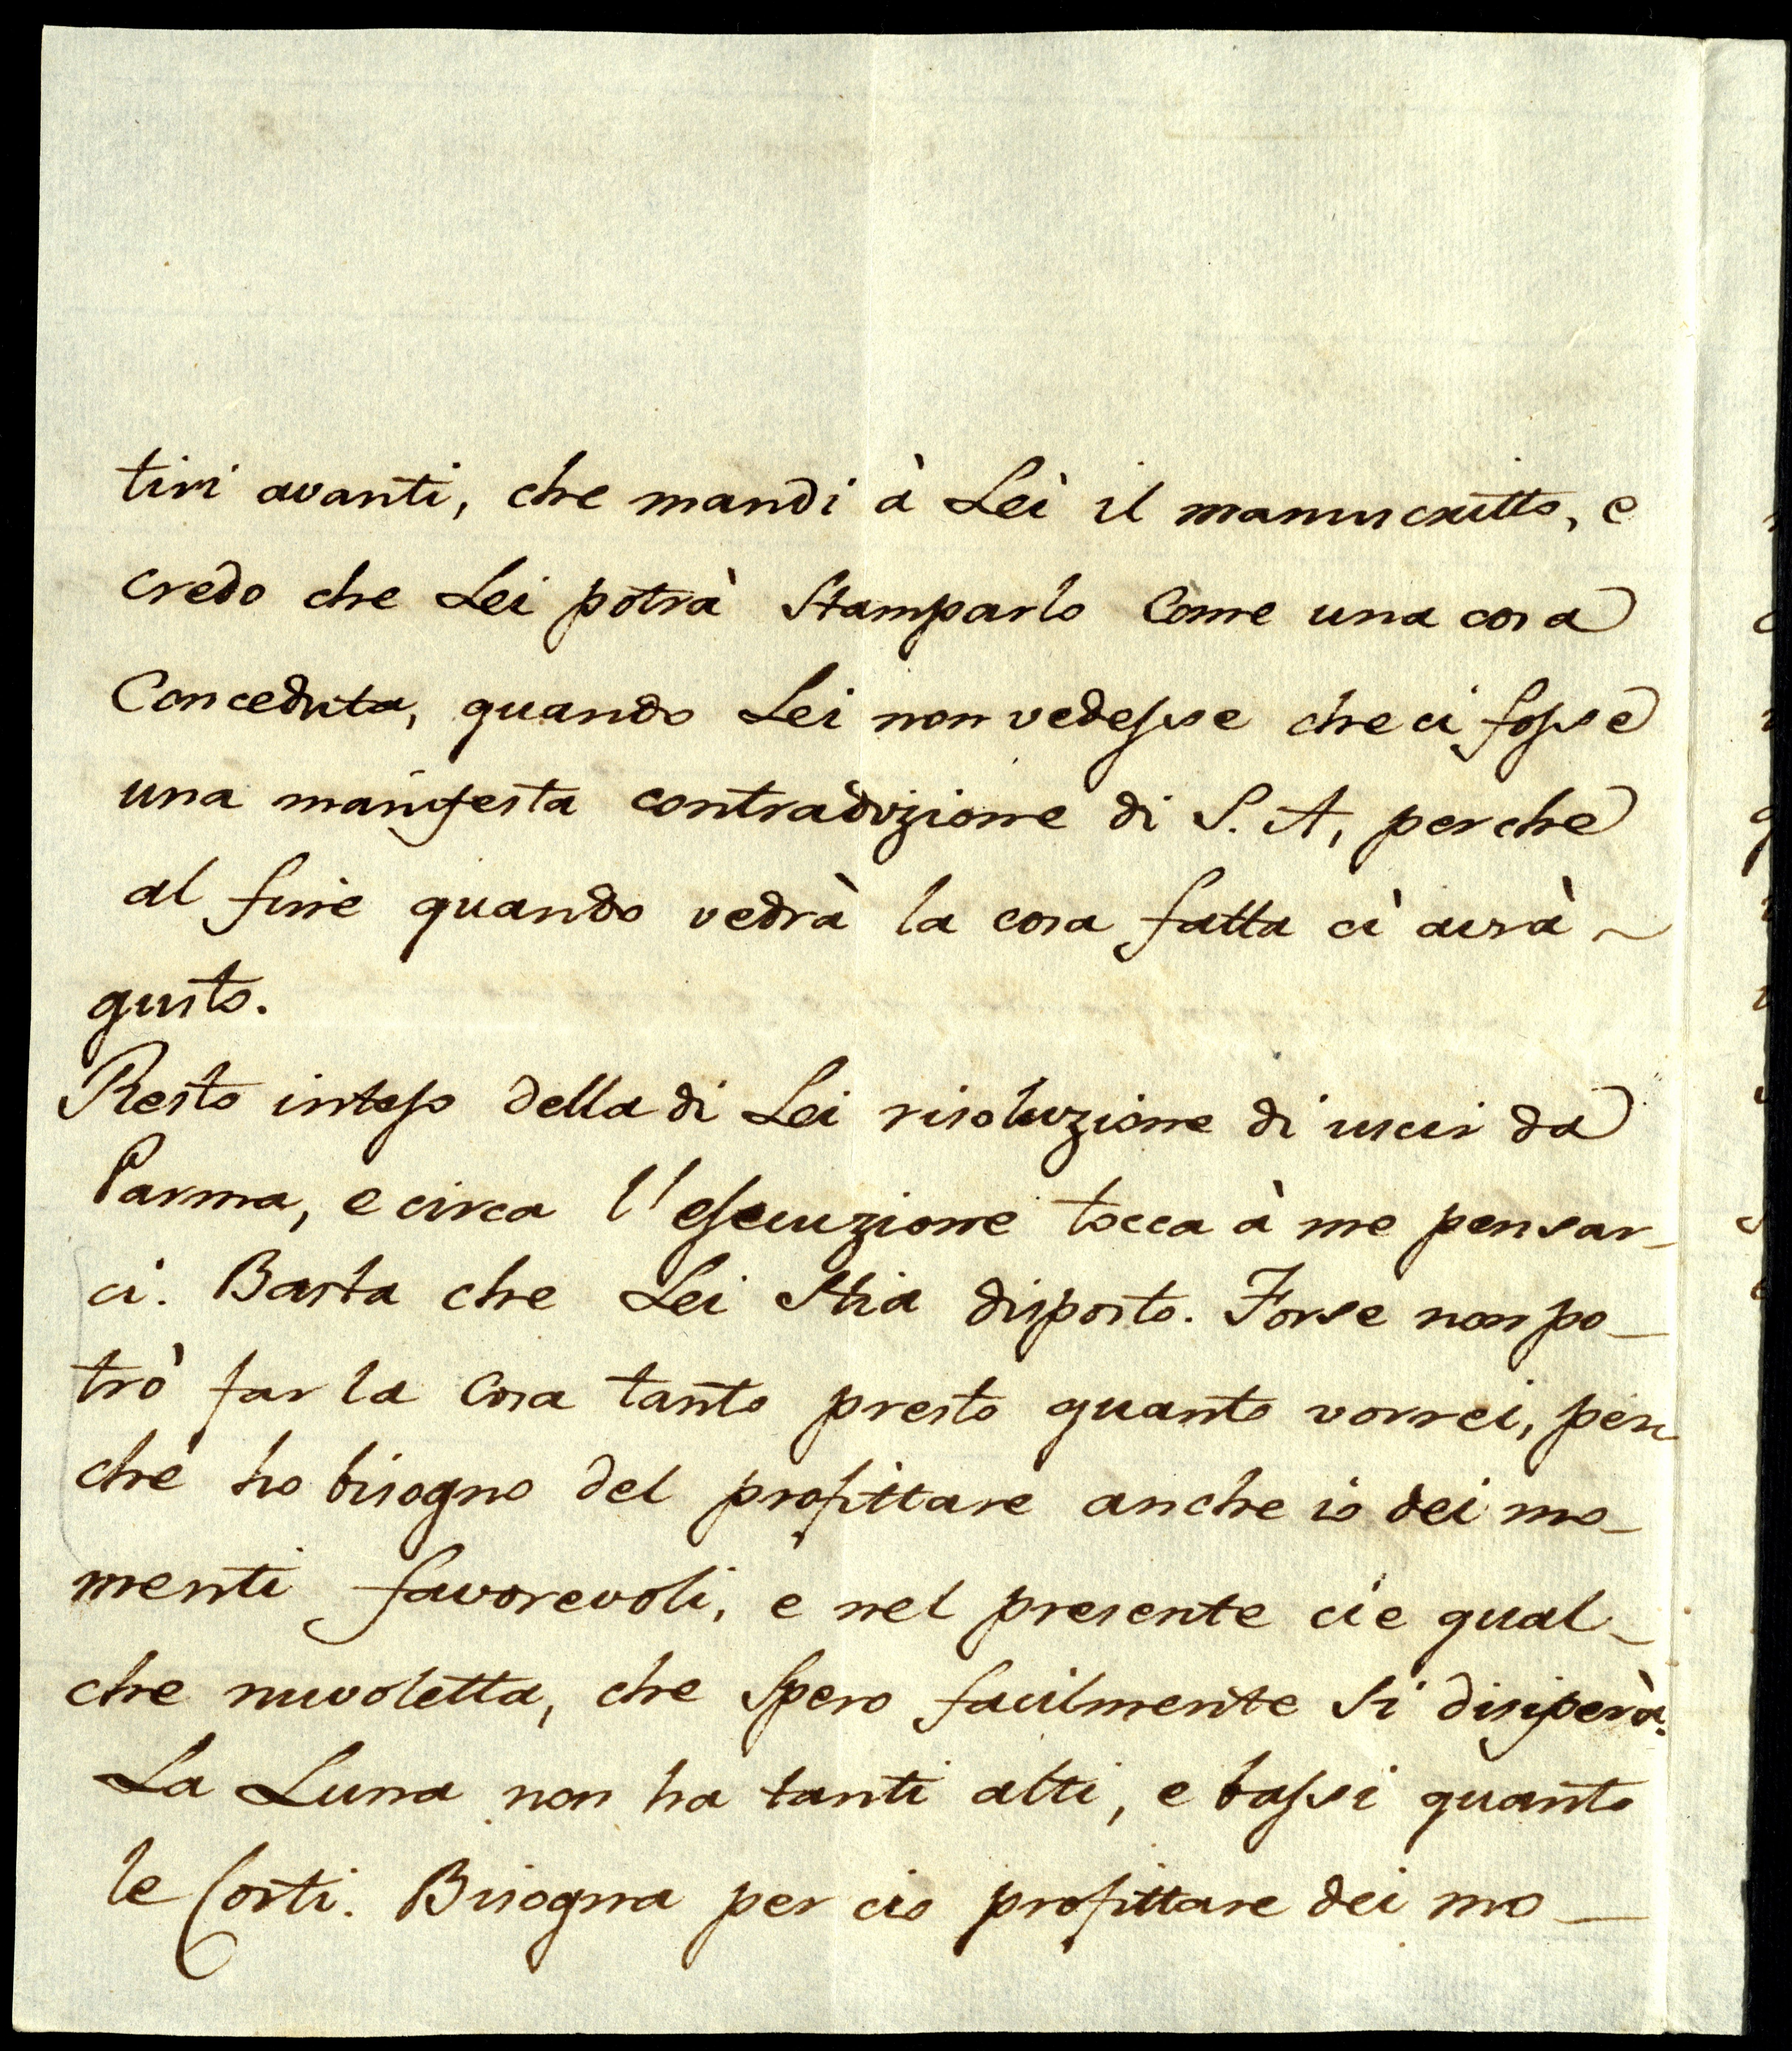 tiri avanti, che mandi à Lei il manuscritto, e
credo che Lei potrà Stamparlo Come una cosa
Conceduta, quando Lei non vedesse che ci fosse
una manifesta contradizione di S. A, perche
al fine quando vedrà la cosa fatta ci avrà ~
gusto.
Resto inteso della di Lei risoluzione di uscir da
Parma, e circa l'esecuzione tocca à me pensar-
ci. Basta che Lei Stia disposto. Forse non po-
trò far la Cosa tanto presto quanto vorrei, per
chè ho bisogno del profittare anche io dei mo-
menti favorevoli, e nel presente ci e qual-
che nuvoletta, che Spero facilmente Si disiperà.
La Luna non ha tanti alti, e bassi quanto
le Corti. Bisogna per cio profittare dei mo-